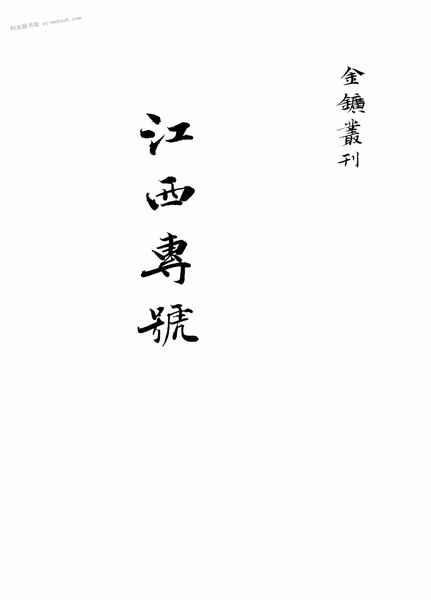 金鑛叢刊
江西專號